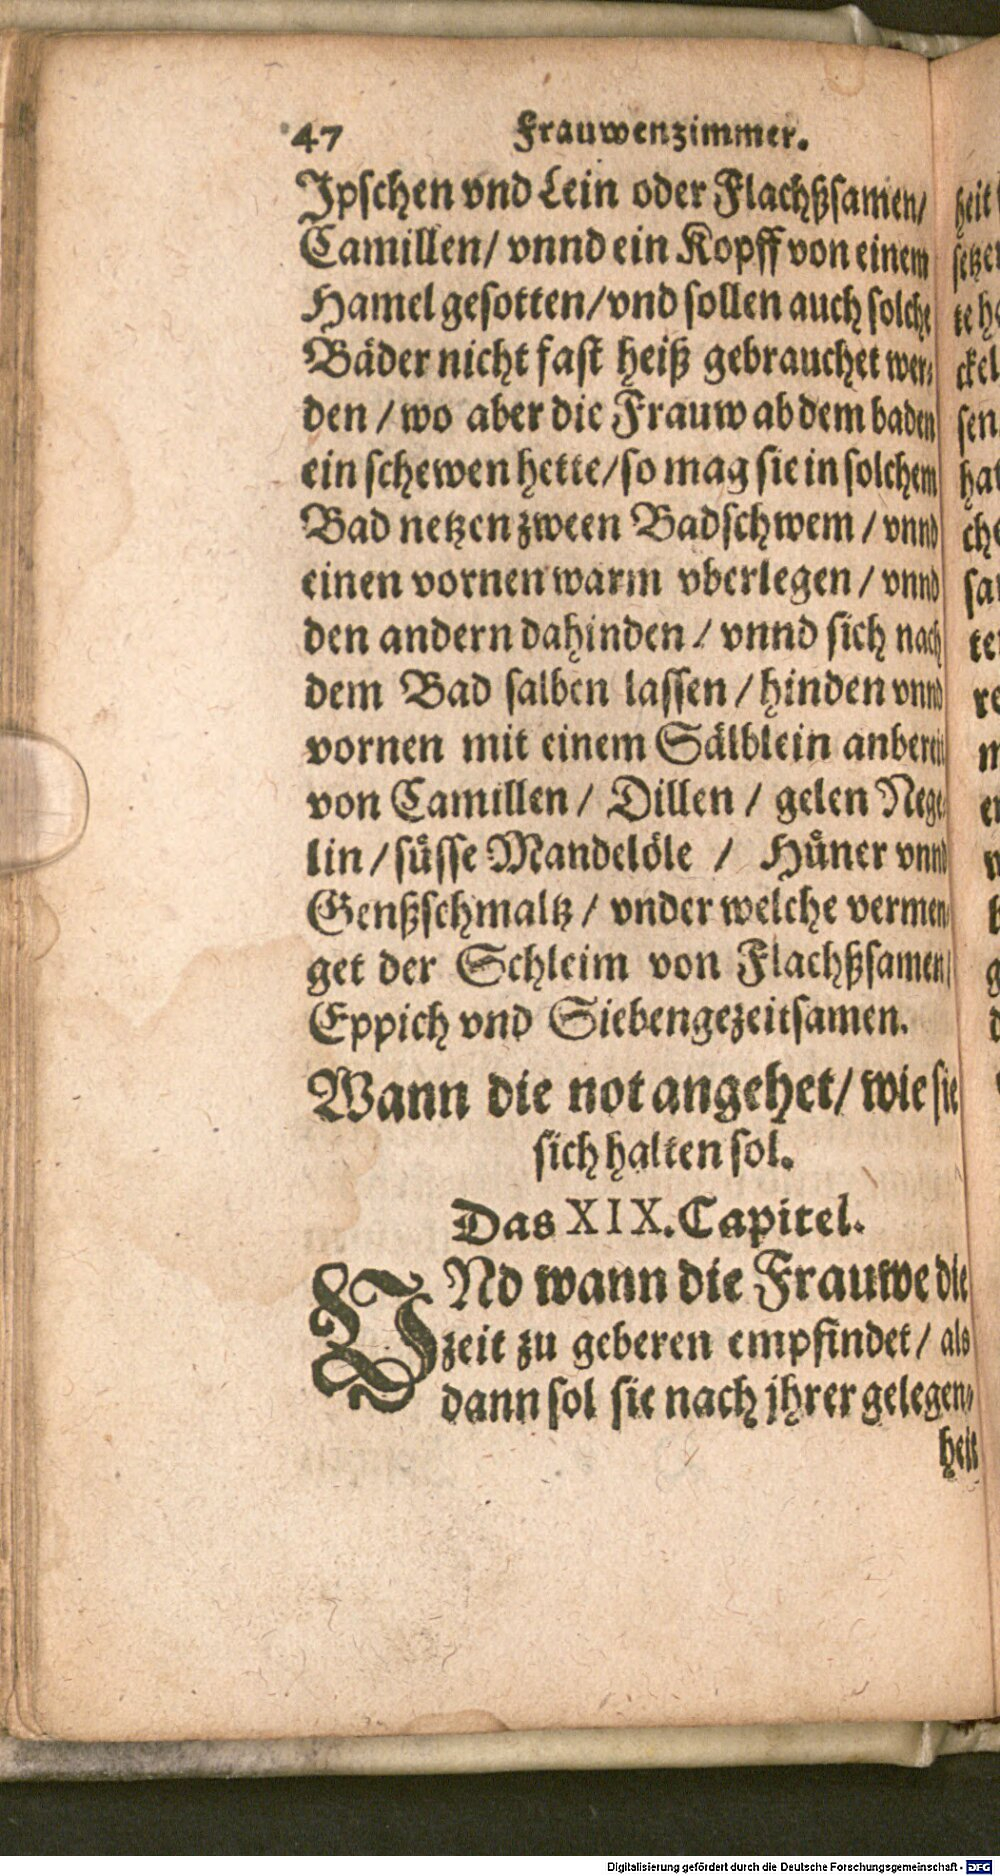 47 Frauwenzimmer.
Jpschen vnd Lein oder Flachßsamen/
Camillen/ vnnd ein Kopff von einem
Hamel gesotten/vnd sollen auch solche
Bäder nicht fast heiß gebrauchet wer-
den / wo aber die Frauw ab dem baden
ein schewen hette/so mag sie in solchem
Bad netzen zween Badschwem / vnnd
einen vornen warm vberlegen / vnnd
den andern dahinden / vnnd sich nach
dem Bad salben lassen / hinden vnnd
vornen mit einem Sälblein anbereit
von Camillen / Dillen / gelen Nege-
lin / süsse Mandelöle / Hüner vnnd
Genßschmaltz / vnder welche vermen-
get der Schleim von Flachßsamen/
Eppich vnd Siebengezeitsamen.
Wann die not angehet/ wie sie
sich halten sol.
Das XIX. Capitel.
VNd wann die Frauwe die
zeit zu geberen empfindet / als
dann sol sie nach jhrer gelegen-
heit
Digitalisierung gefördert durch die Deutsche Forschungsgemeinschaft - DFG